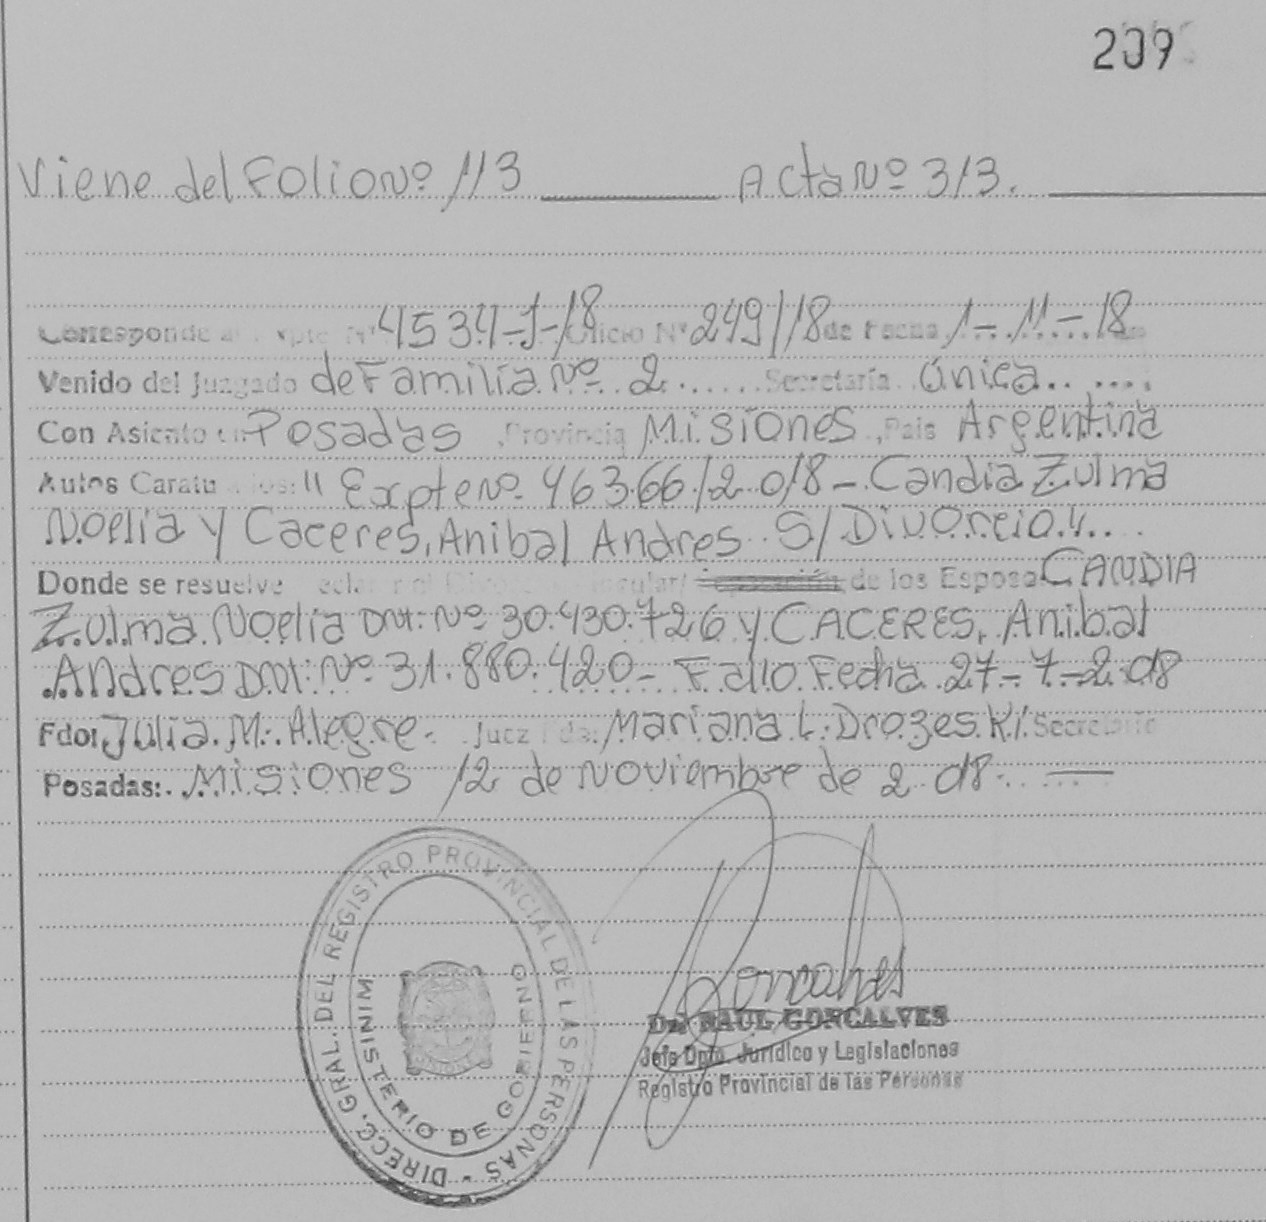 209
Viene del Folio Nº 113 Acta Nº 313.
Corresponde al Expte Nº 4534-J-18 Oficio Nº 249/18 de Fecha 1-11-18
Venido del Juzgado de Familia Nº 2 Secretaría Única
Con Asiento en Posadas, Provincia Misiones, Pais Argentina
Autos Caratulados: " Expte Nº 46366/2018 - Candia Zulma
Noelia y Caceres, Anibal Andres S/ Divorcio".
Donde se resuelve Declarar el Divorcio Vincular/ Separación de los Esposos CANDIA
Zulma Noelia DNI: Nº 30.430.726 y CACERES, Anibal
Andres DNI: Nº 31.880.420 - Fallo Fecha 27-7-2018
Fdo: Julia M. Alegre. Juez Fdo: Mariana L. Drozeski Secretario
Posadas: Misiones 12 de Noviembre de 2018.
DIRECC. GRAL. DEL REGISTRO PROVINCIAL DE LAS PERSONAS -
MINISTERIO DE GOBIERNO
Goncalves
Dr. RAUL GONCALVES
Jefe Dpto. Jurídico y Legislaciones
Registro Provincial de las Personas